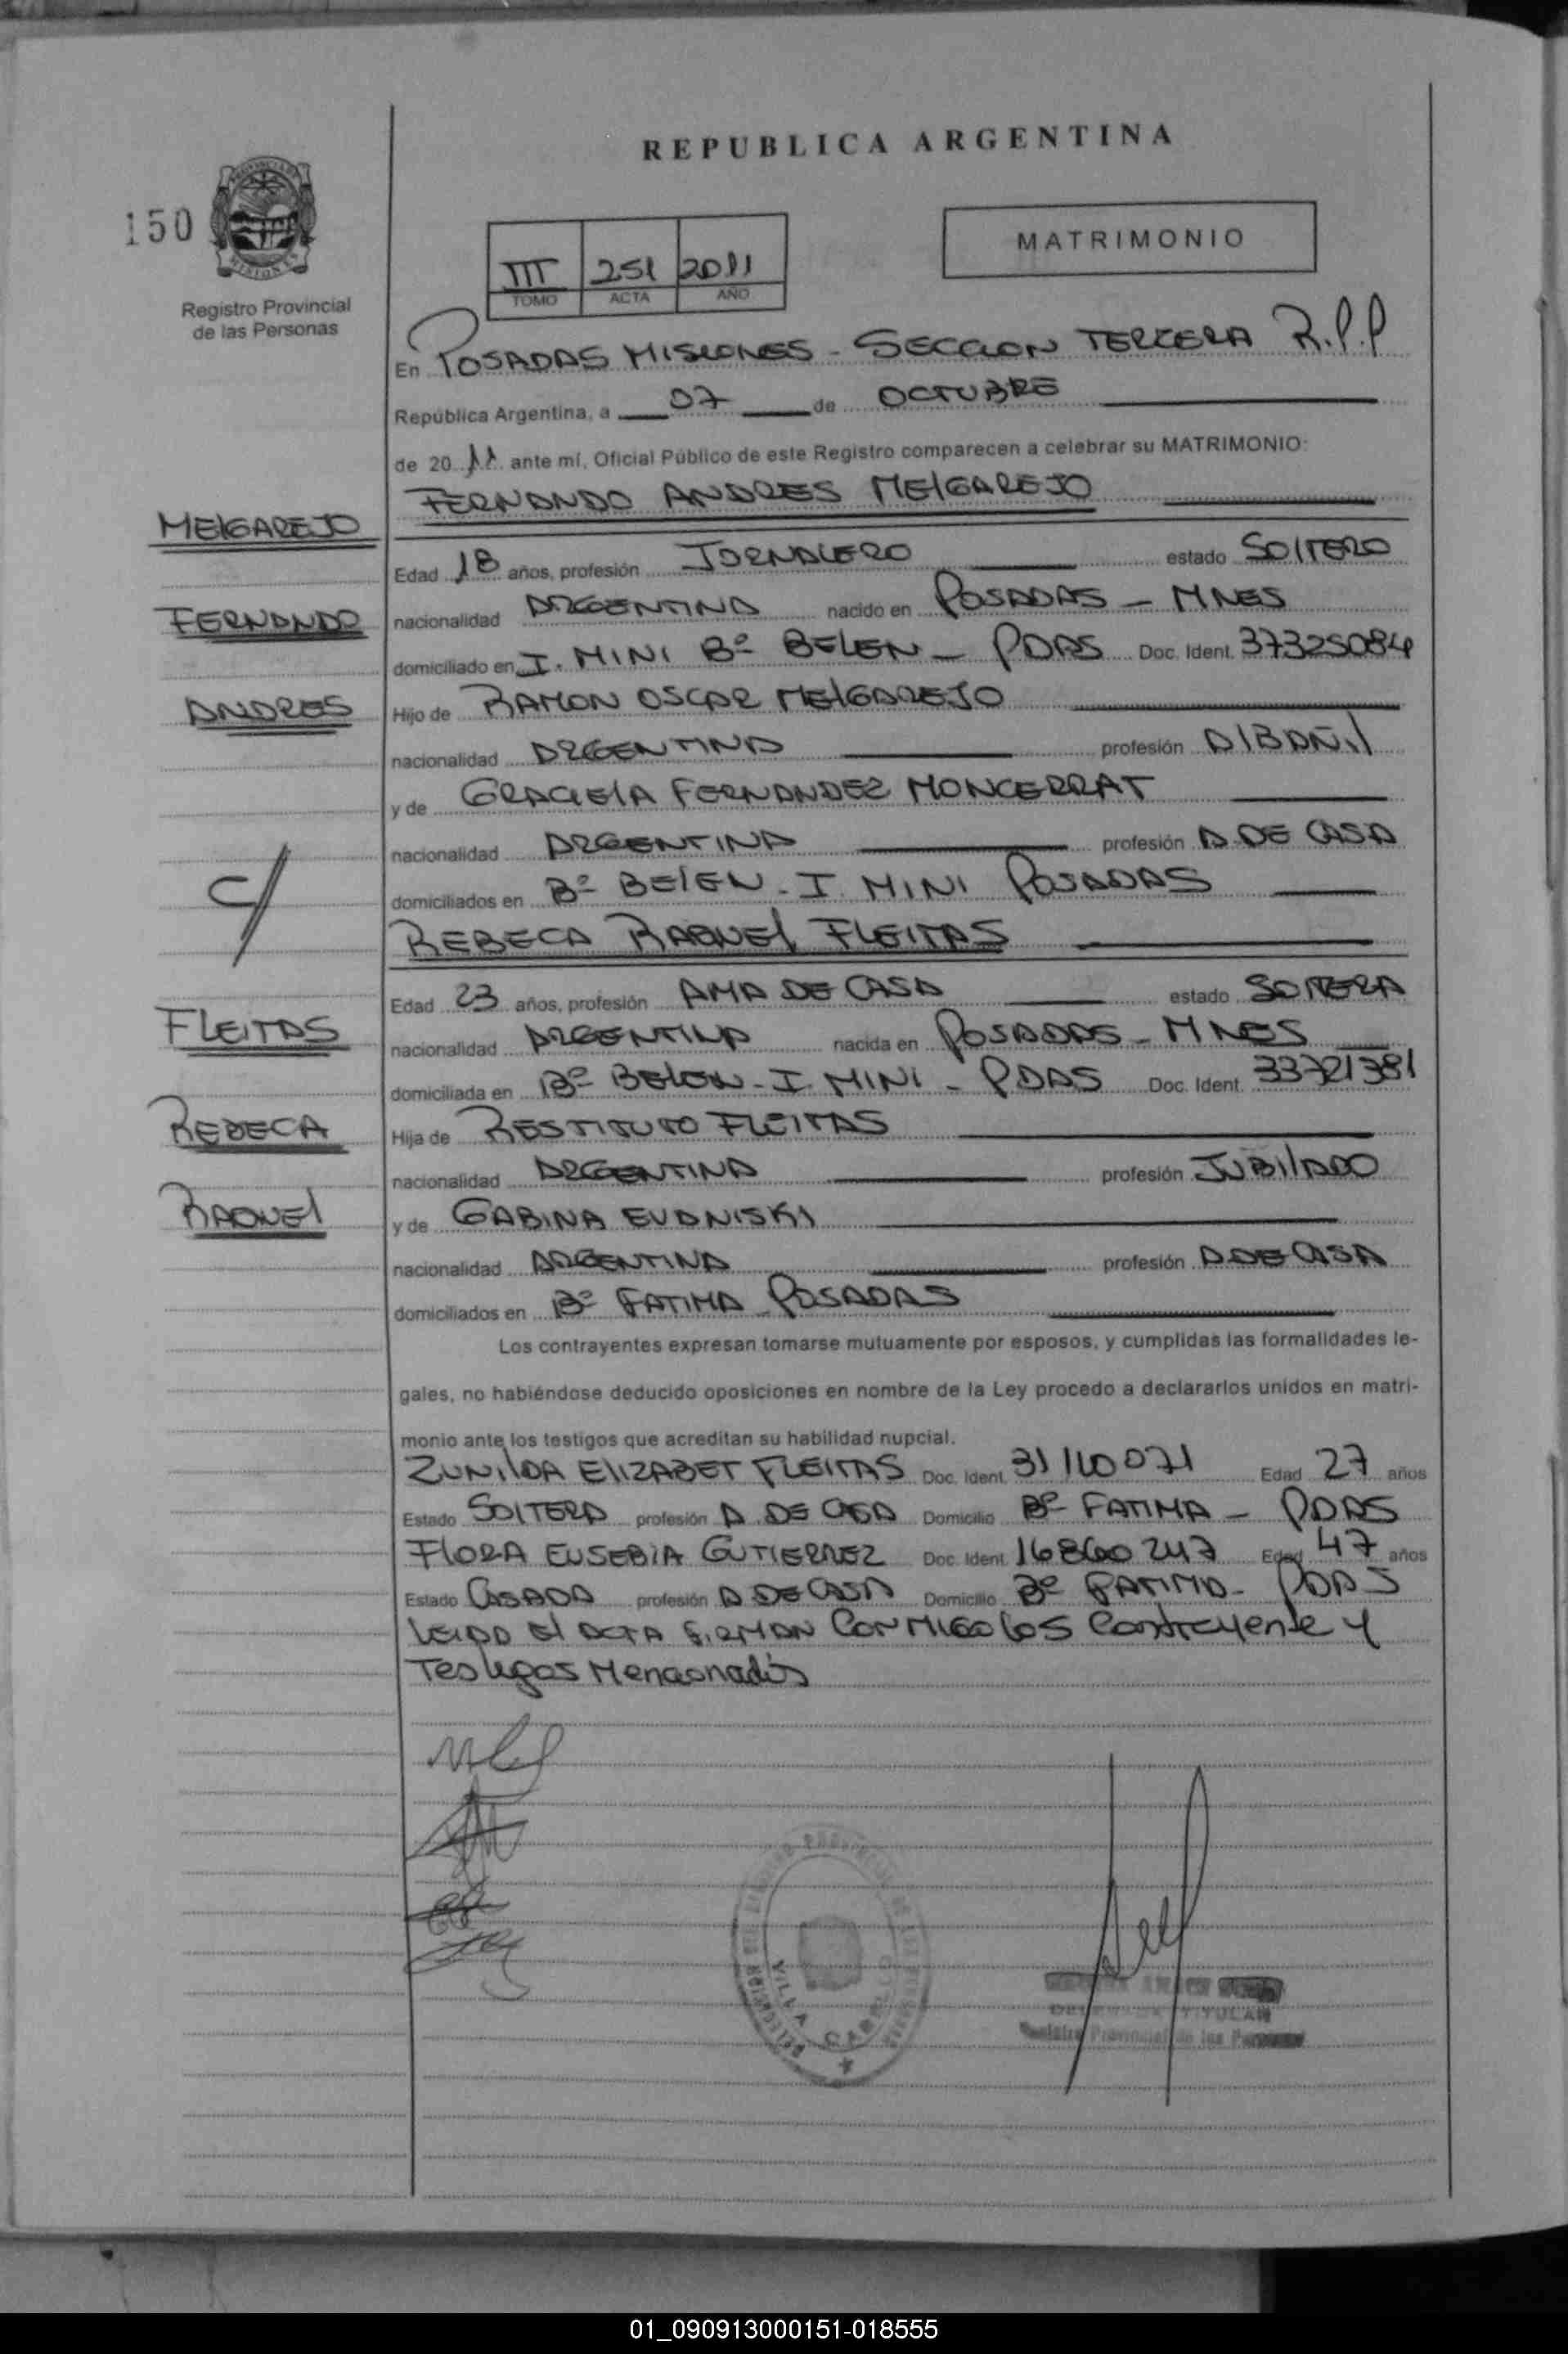 REPUBLICA ARGENTINA
150
PROVINCIA DE
MISIONES
Registro Provincial
de las Personas
MATRIMONIO
III 251 2011
TOMO ACTA AÑO
En POSADAS MISIONES - SECCION TERCERA R.P.P
República Argentina, a 07 de OCTUBRE
de 20 11 ante mí, Oficial Público de este Registro comparecen a celebrar su MATRIMONIO:
FERNANDO ANDRES MElGAREJO
MElGAREJO
Edad 18 años, profesión JORNALERO estado SOlTERO
FERNANDO
nacionalidad ARGENTINA nacido en POSADAS - MNES
domiciliado en I. MINI Bº BELEN - PDAS Doc. Ident. 37325084
ANDRES
Hijo de RAMON OSCAR MElGAREJO
nacionalidad ARGENTINA profesión AlBAÑIl
y de GRACIElA FERNANDEZ MONCERRAT
nacionalidad ARGENTINA profesión A. DE CASA
C/
domiciliados en Bº BElEN - I. MINI POSADAS
REBECA RAQUEl FLEITAS
Edad 23 años, profesión AMA DE CASA estado SOlTERA
FLEITAS
nacionalidad ARGENTINA nacida en POSADAS - MNES
domiciliada en Bº BELEN - I. MINI - PDAS Doc. Ident. 33721381
REBECA
Hija de RESTITUTO FLEITAS
nacionalidad ARGENTINA profesión JUBIlADO
RAQUEl
y de GABINA EUDNISKI
nacionalidad ARGENTINA profesión A DE CASA
domiciliados en Bº FATIMA - POSADAS
Los contrayentes expresan tomarse mutuamente por esposos, y cumplidas las formalidades le-
gales, no habiéndose deducido oposiciones en nombre de la Ley procedo a declararlos unidos en matri-
monio ante los testigos que acreditan su habilidad nupcial.
ZUNIlDA ElIZABET FLEITAS Doc. Ident. 31110071 Edad 27 años
Estado SOlTERA profesión A. DE CASA Domicilio Bº FATIMA - PDAS
FlORA EUSEBIA GUTIERREZ Doc. Ident. 16860247 Edad 47 años
Estado CASADA profesión A DE CASA Domicilio Bº FATIMA - PDAS
LEIDA El ACTA FIRMAN CONMIGO los Contrayente y
Testigos Mencionados
VILLA CABELLO
TITULAR
Registro Provincial de las Personas
01_090913000151-018555